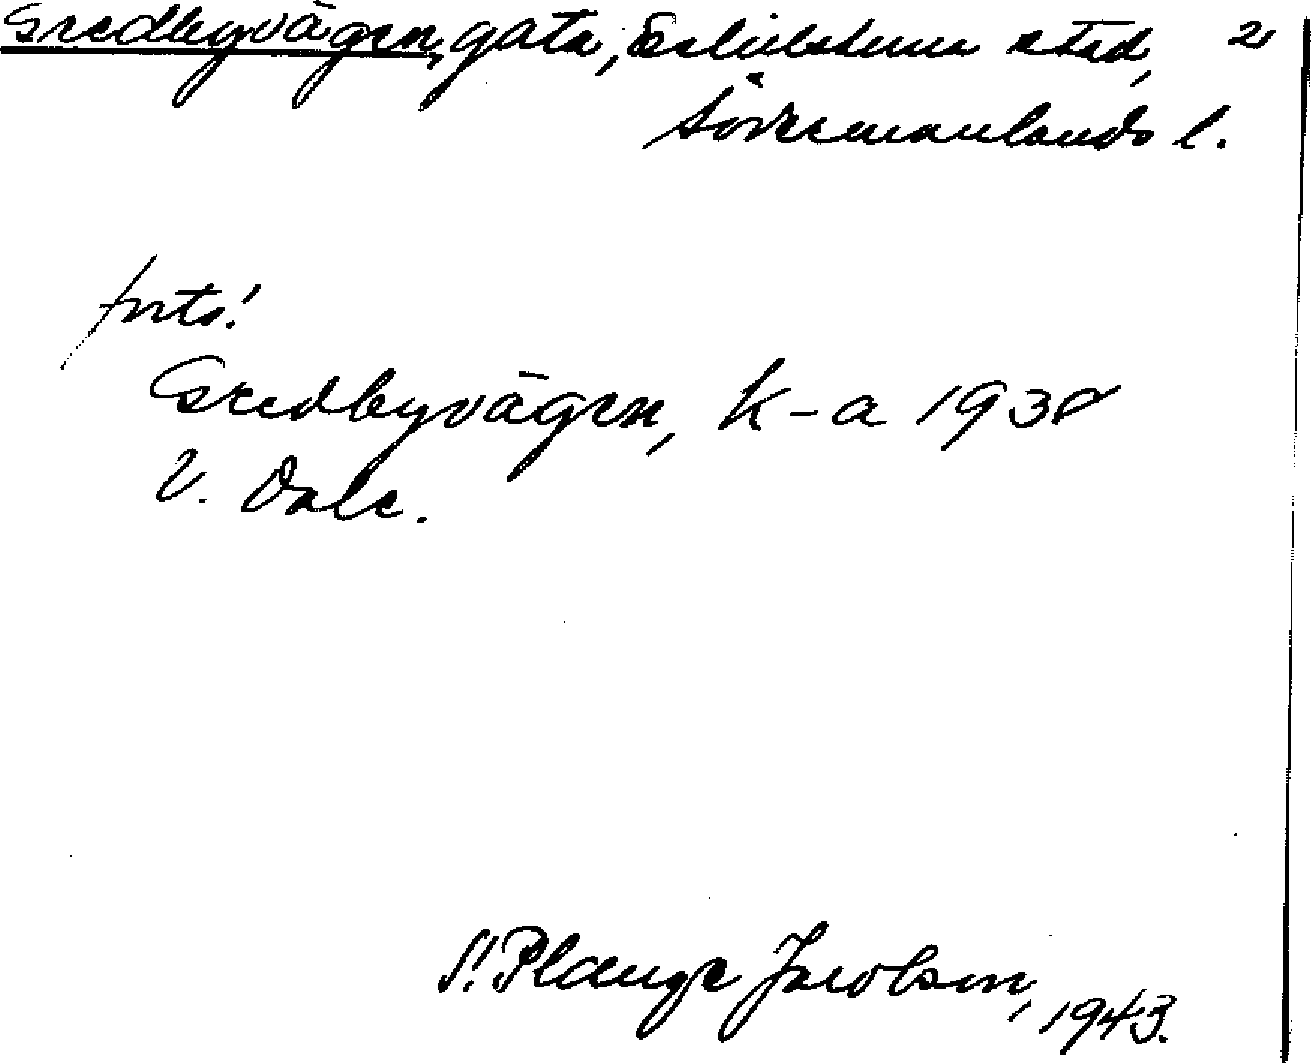 Gredbyvägen, gata, Eskilstuna stad, 2
Södermanlands l.
forts!
Gredbyvägen, k-a 1938
V. Dale.
S. Plange Jacobson, 1943.